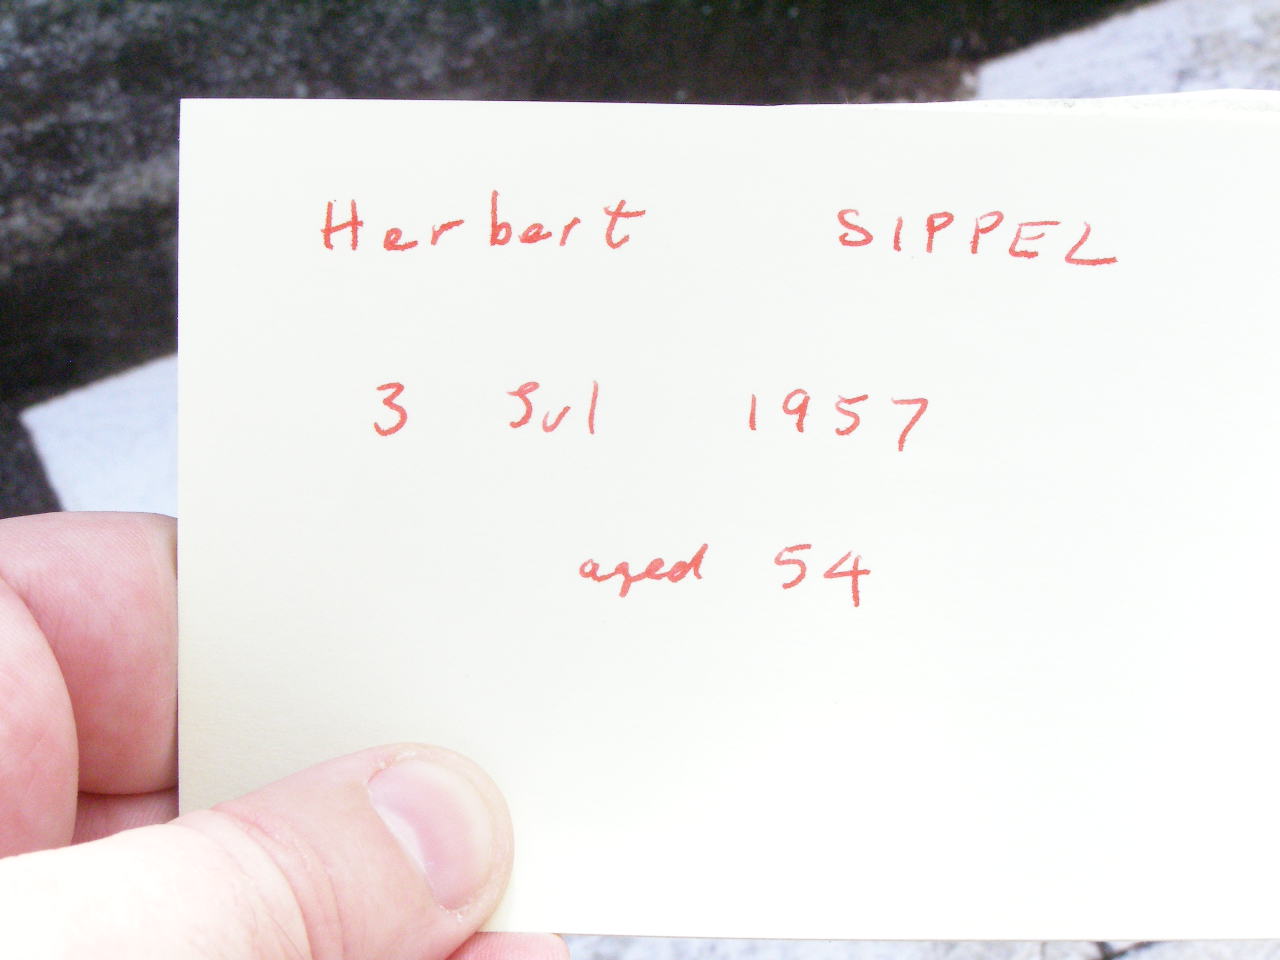 Herbert SIPPEL
3 Jul 1957
aged 54